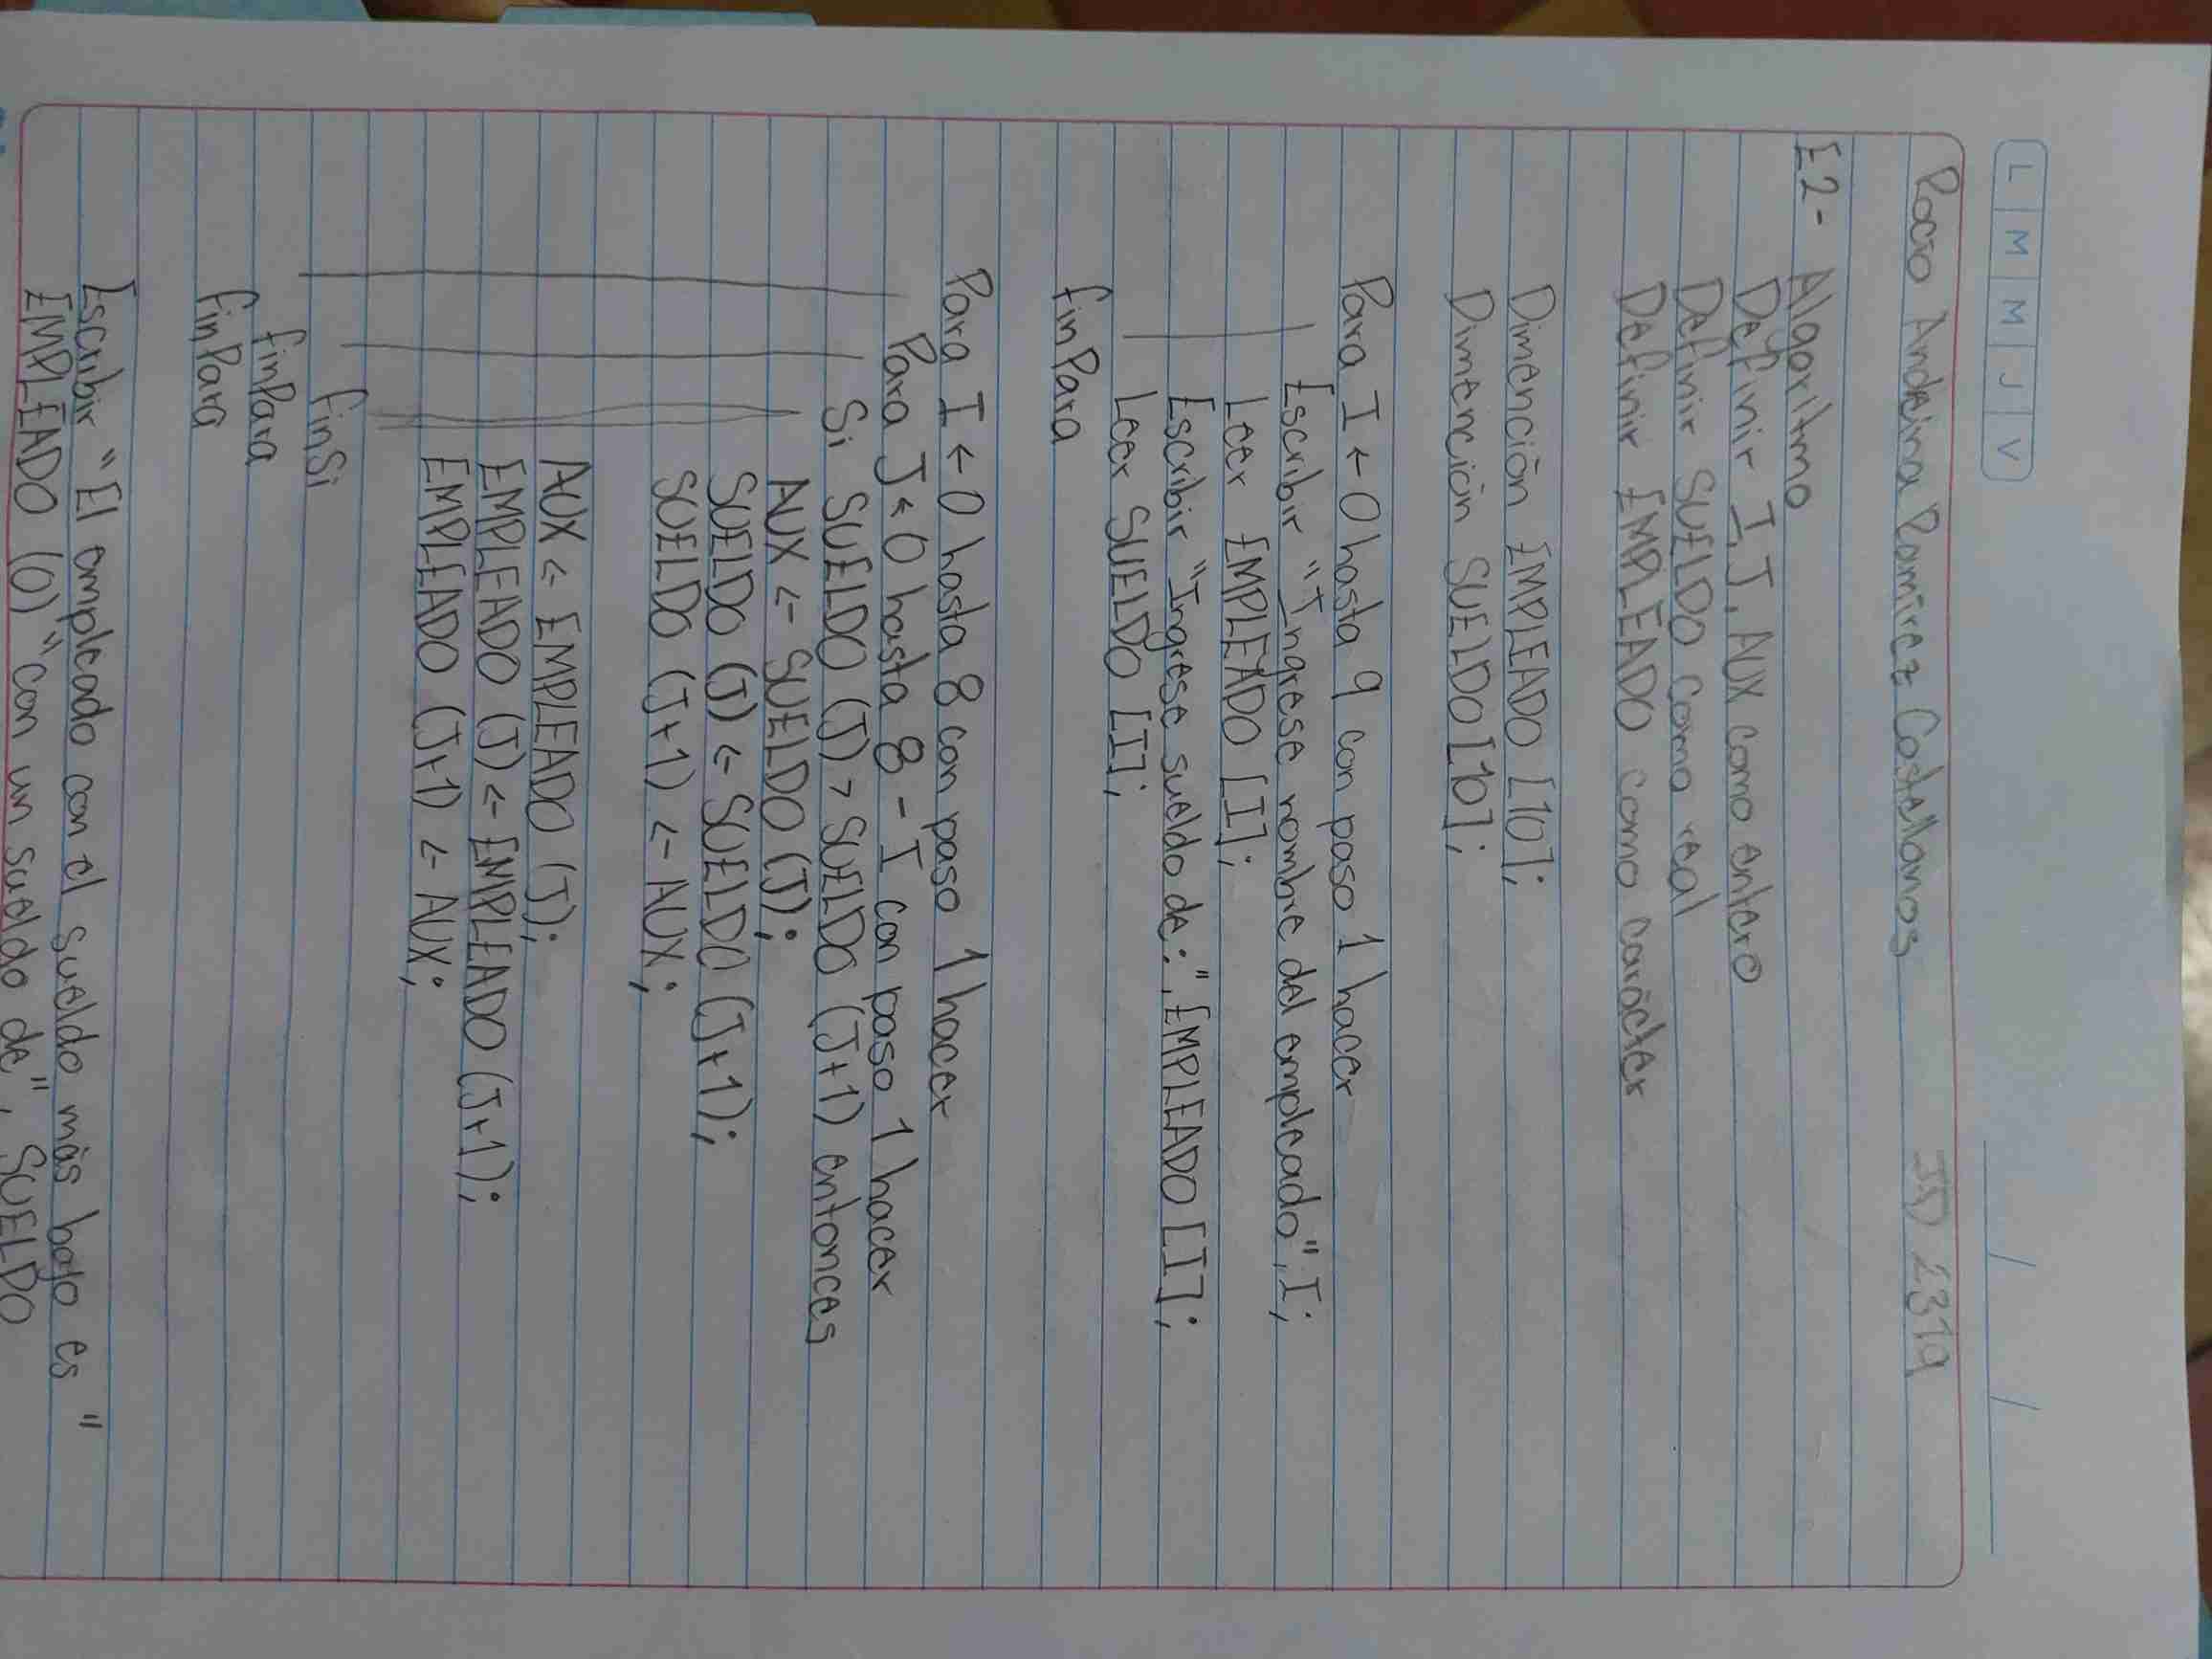 L M M J V
Rocio Andreina Ramirez Castellanos ID 2319
E2- Algoritmo
Definir I, J, AUX como entero
Definir SUELDO como real
Definir EMPLEADO como carácter
Dimención EMPLEADO [10];
Dimención SUELDO [10];
Para I ← 0 hasta 9 con paso 1 hacer
Escribir "Ingrese nombre del empleado", I;
Leer EMPLEADO [I];
Escribir "Ingrese sueldo de:", EMPLEADO [I];
Leer SUELDO [I];
finPara
Para I ← 0 hasta 8 con paso 1 hacer
Para J ← 0 hasta 8 - I con paso 1 hacer
Si SUELDO (J) > SUELDO (J+1) entonces
AUX ← SUELDO (J);
SUELDO (J) ← SUELDO (J+1);
SUELDO (J+1) ← AUX;
AUX ← EMPLEADO (J);
EMPLEADO (J) ← EMPLEADO (J+1);
EMPLEADO (J+1) ← AUX;
finSi
finPara
finPara
Escribir "El empleado con el sueldo más bajo es "
EMPLEADO (0) "con un sueldo de", SUELDO